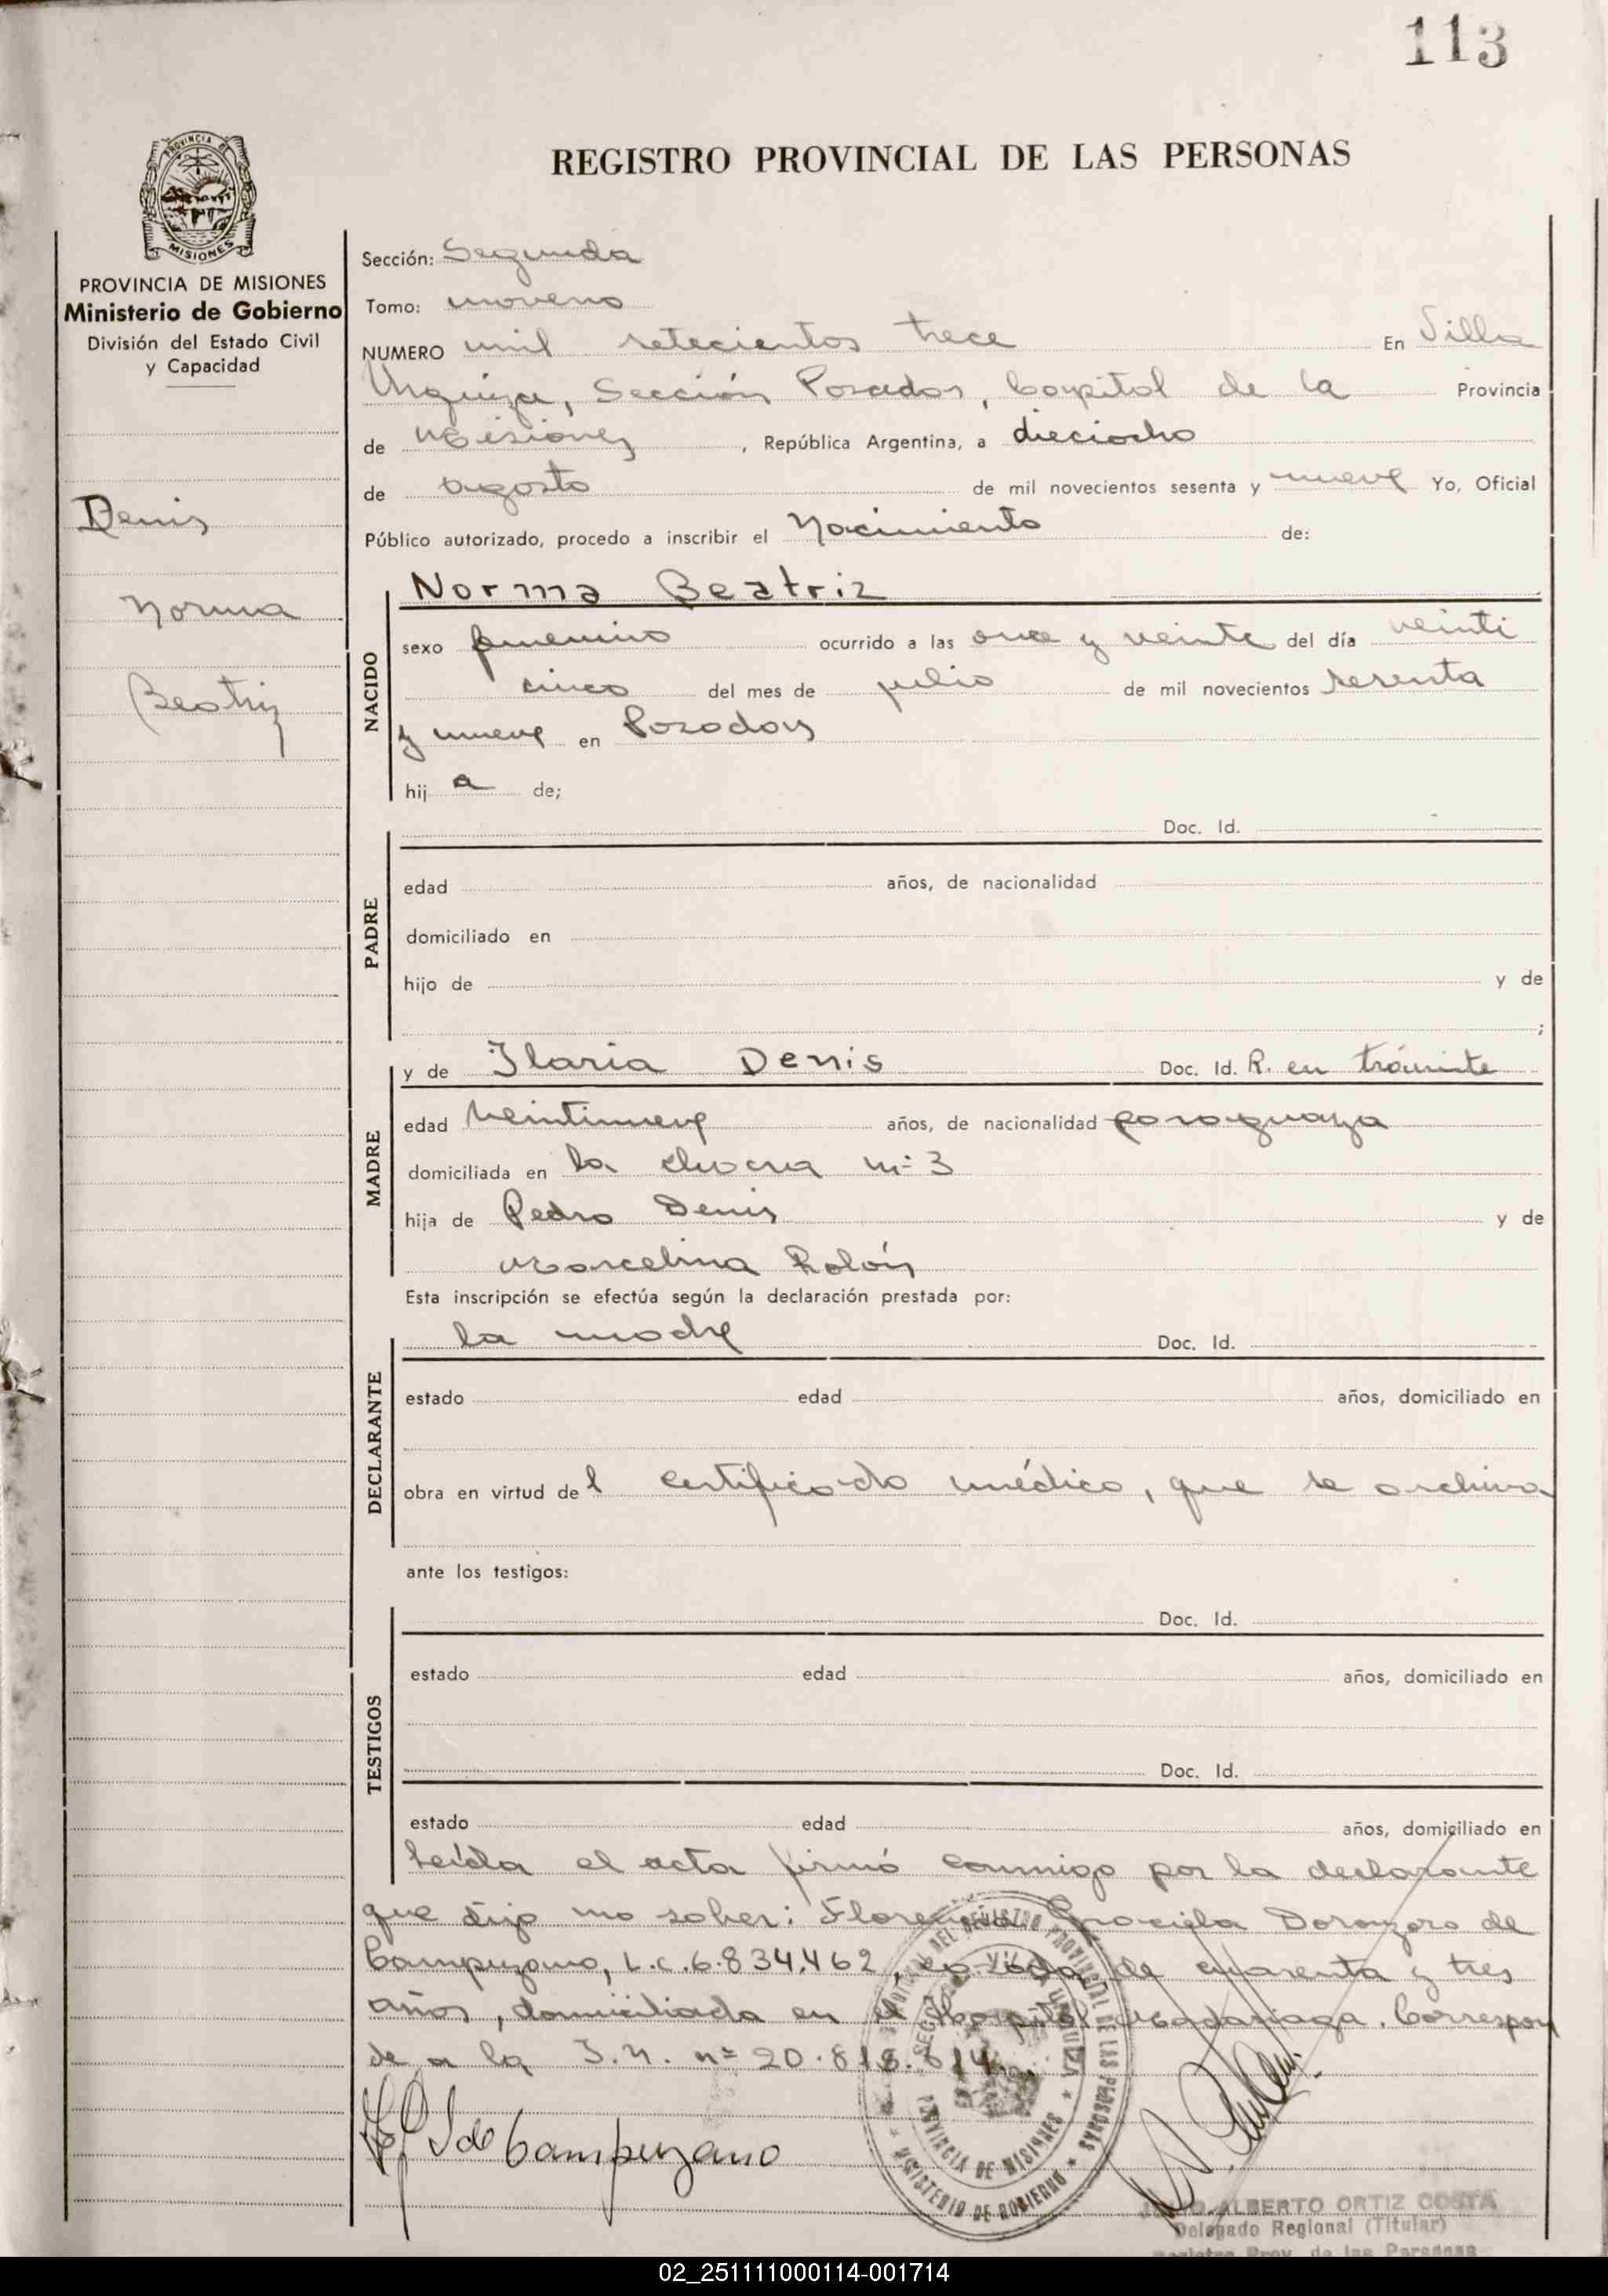 113
PROVINCIA DE
MISIONES
REGISTRO PROVINCIAL DE LAS PERSONAS
PROVINCIA DE MISIONES
Ministerio de Gobierno
División del Estado Civil
y Capacidad
Denis
Norma
Beatriz
Sección: Segunda
Tomo: noveno
NUMERO mil setecientos trece En Villa
Urquiza, Sección Posadas, Capital de la Provincia
de Misiones, República Argentina, a dieciocho
de agosto de mil novecientos sesenta y nueve Yo, Oficial
Público autorizado, procedo a inscribir el Nacimiento de:
NACIDO
Norma Beatriz
sexo femenino ocurrido a las once y veinte del día veinti
cinco del mes de julio de mil novecientos sesenta
y nueve en Posadas
hij a de;
PADRE
Doc. Id.
edad años, de nacionalidad
domiciliado en
hijo de y de
;
MADRE
y de Ilaria Denis Doc. Id. R. en trámite
edad veintinueve años, de nacionalidad paraguaya
domiciliada en la chacra nº 3
hija de Pedro Denis y de
Marcelina Rolón
Esta inscripción se efectúa según la declaración prestada por:
DECLARANTE
la madre Doc. Id.
estado edad años, domiciliado en
obra en virtud de l certificado médico, que se archiva
ante los testigos:
TESTIGOS
Doc. Id.
estado edad años, domiciliado en
Doc. Id.
estado edad años, domiciliado en
Leída el acta firmó conmigo por la declarante
que dijo no saber: Graciela de
Campuzano, L.C. 6.834.462, de cuarenta y tres
años, domiciliada en el Hospital Madariaga. Correspon
de a la I.N. nº 20.818.614
de Campuzano
PROVINCIA DE MISIONES
MINISTERIO DE GOBIERNO
ALBERTO ORTIZ COSTA
Delegado Regional (Titular)
Registro Prov. de las Personas
02_251111000114-001714